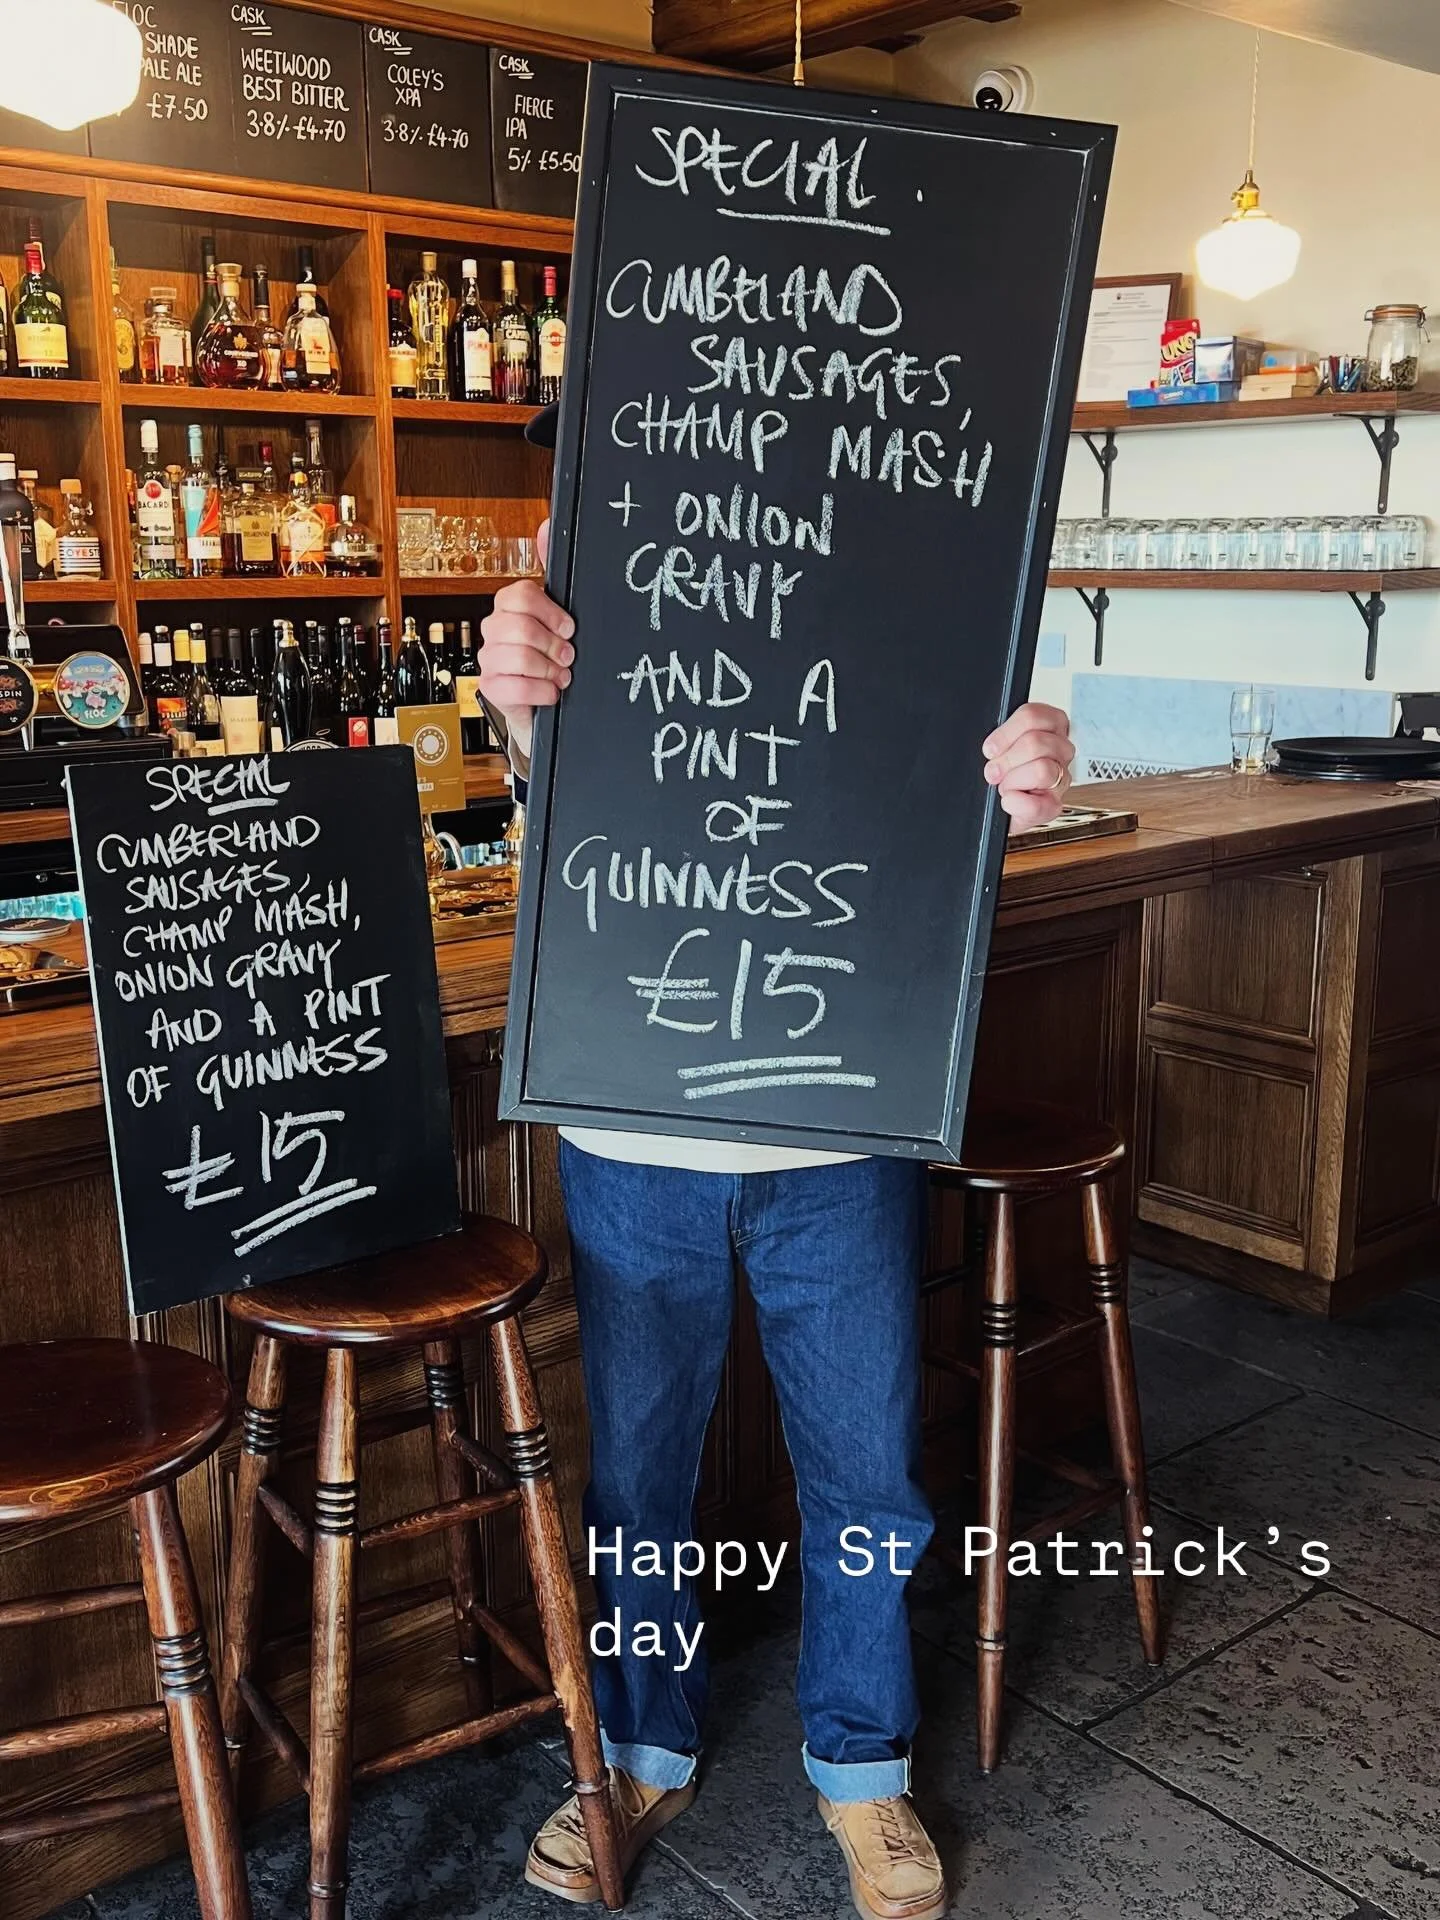 FLOC
SHADE
PALE ALE
£7.50
CASK
WEETWOOD
BEST BITTER
3.8% £4.70
CASK
COLEY'S
XPA
3.8% £4.70
CASK
FIERCE
IPA
5% £5.50
SPECIAL
CUMBELAND
SAUSAGES,
CHAMP MASH
+ ONION
GRAVY
AND A
PINT
OF
GUINNESS
£15
UNO
BACARDI
FLOC
SPECIAL
CUMBERLAND
SAUSAGES,
CHAMP MASH,
ONION GRAVY
AND A PINT
OF GUINNESS
£15
Happy St Patrick’s
day